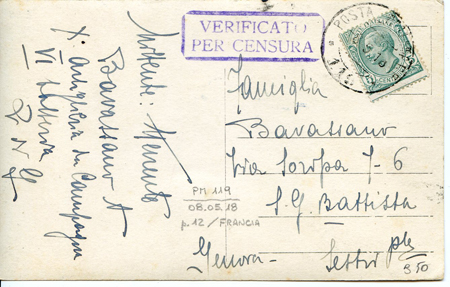 VERIFICATO
PER CENSURA
POSTA
Mittente: Tenente
Bavassano A
X° Artiglieria da Campagna
VI Batteria
Famiglia
Bavassano
Via 7-6
S. G. Battista
Genova - Sestri
PM 119
08.05.18
p.12 / FRANCIA
950